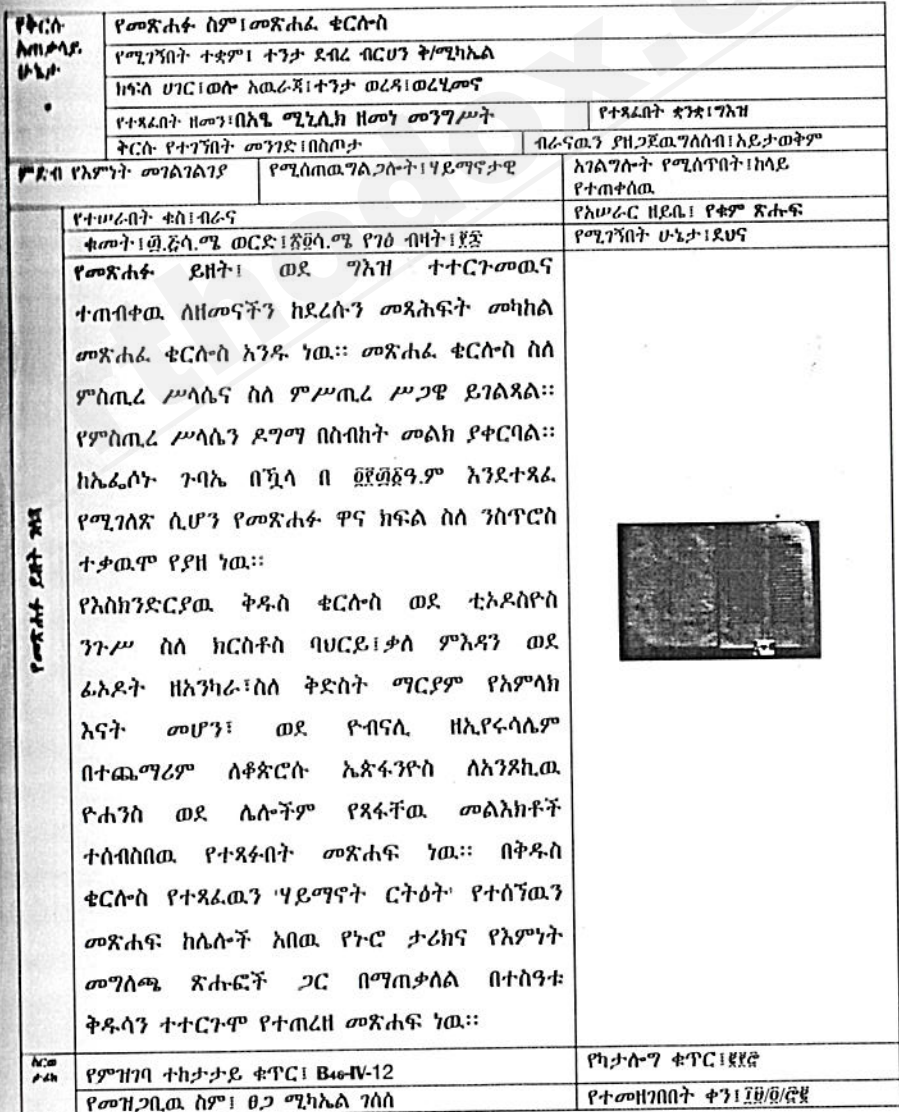 የቅርሱ አጠቃላይ ሁኔታ
የመጽሐፉ ስም፤መጽሐፈ ቄርሎስ
የሚገኝበት ተቋም፤ ተንታ ደብረ ብርሀን ቅ/ሚካኤል
ክፍለ ሀገር፤ወሎ አዉራጃ፤ተንታ ወረዳ፤ወረሂመኖ
የተጻፈበት ዘመን፡በአፄ ሚኒሊክ ዘመነ መንግሥት የተጻፈበት ቋንቋ፤ግእዝ
ቅርሱ የተገኘበት መንገድ፤በስጦታ ብራናዉን ያዘጋጀዉግለሰብ፤አይታወቅም
ምድብ የእምነት መገልገልገያ የሚሰጠዉግልጋሎት፤ሃይማኖታዊ አገልግሎት የሚሰጥበት፤ከላይ የተጠቀሰዉ
የተሠራበት ቁስ፤ብራና የአሠራር ዘይቤ፤ የቁም ጽሑፍ
ቁመት፤ ወርድ፤ የገፅ ብዛት፤ የሚገኝበት ሁኔታ፤ደህና
የመጽሐፉ ይዘት ገጽታ
የመጽሐፉ ይዘት፤ ወደ ግእዝ ተተርጉመዉና
ተጠብቀዉ ለዘመናችን ከደረሱን መጻሕፍት መካከል
መጽሐፈ ቄርሎስ አንዱ ነዉ። መጽሐፈ ቄርሎስ ስለ
ምስጢረ ሥላሴና ስለ ምሥጢረ ሥጋዌ ይገልጻል።
የምስጢረ ሥላሴን ዶግማ በስብከት መልክ ያቀርባል።
ከኤፌሶኑ ጉባኤ በኋላ በ ፬፻፴፩ዓ.ም እንደተጻፈ
የሚገለጽ ሲሆን የመጽሐፉ ዋና ክፍል ስለ ንስጥሮስ
ተቃዉሞ የያዘ ነዉ።
የእስክንድርያዉ ቅዱስ ቄርሎስ ወደ ቲኦዶስዮስ
ንጉሥ ስለ ክርስቶስ ባህርይ፤ቃለ ምእዳን ወደ
ፊኦዶት ዘአንካራ፣ስለ ቅድስት ማርያም የአምላክ
እናት መሆን፣ ወደ ዮብናሊ ዘኢየሩሳሌም
በተጨማሪም ለቆጵሮሱ ኤጵፋንዮስ ለአንጾኪዉ
ዮሐንስ ወደ ሌሎችም የጻፋቸዉ መልእክቶች
ተሰብስበዉ የተጻፉበት መጽሐፍ ነዉ። በቅዱስ
ቄርሎስ የተጻፈዉን 'ሃይማኖት ርትዕት' የተሰኘዉን
መጽሐፍ ከሌሎች አበዉ የኑሮ ታሪክና የእምነት
መግለጫ ጽሑፎች ጋር በማጠቃለል በተስዓቱ
ቅዱሳን ተተርጉሞ የተጠረዘ መጽሐፍ ነዉ።
የምዝገባ ተከታታይ ቁጥር፤ B46-IV-12 የካታሎግ ቁጥር፤
የመዝጋቢዉ ስም፤ ፀጋ ሚካኤል ገሰሰ የተመዘገበበት ቀን፤